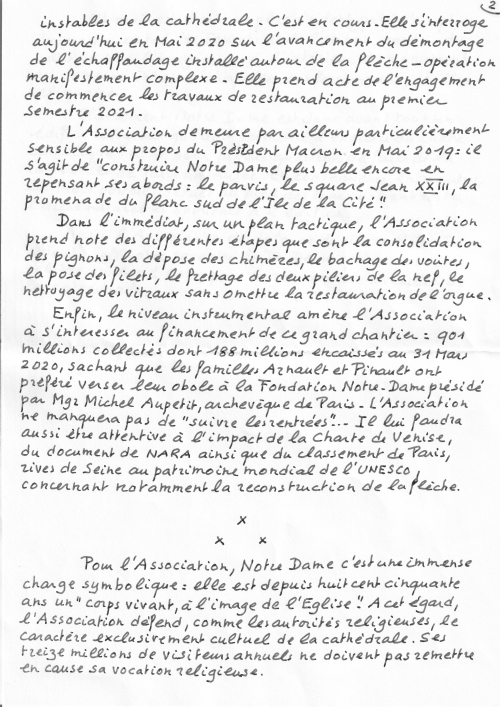 2
instables de la cathédrale. C'est en cours. Elle s'interroge
aujourd'hui en Mai 2020 sur l'avancement du démontage
de l'échaffaudage installé autour de la flèche – opération
manifestement complexe. Elle prend acte de l'engagement
de commencer les travaux de restauration au premier
semestre 2021.
L'Association demeure par ailleurs particulièrement
sensible aux propos du Président Macron en Mai 2019 : il
s'agit de "construire Notre Dame plus belle encore en
repensant ses abords : le parvis, le square Jean XXIII, la
promenade du flanc sud de l'Ile de la Cité".
Dans l'immédiat, sur un plan tactique, l'Association
prend note des différentes étapes que sont la consolidation
des pignons, la dépose des chimères, le bachage des voûtes,
la pose des filets, le frettage des deux piliers de la nef, le
nettoyage des vitraux sans omettre la restauration de l'orgue.
Enfin, le niveau instrumental amène l'Association
à s'interesser au financement de ce grand chantier : 901
millions collectés dont 188 millions encaissés au 31 Mars
2020, sachant que les familles Arnault et Pinault ont
préféré verser leur obole à la Fondation Notre-Dame présidé
par Mgr Michel Aupetit, archevêque de Paris. L'Association
ne manquera pas de "suivre les rentrées"... Il lui faudra
aussi être attentive à l'impact de la Charte de Venise,
du document de NARA ainsi que du classement de Paris,
rives de Seine au patrimoine mondial de l'UNESCO,
concernant notamment la reconstruction de la flèche.
x
x x
Pour l'Association, Notre Dame c'est une immense
charge symbolique : elle est depuis huit cent cinquante
ans un "corps vivant, à l'image de l'Eglise". A cet égard,
l'Association défend, comme les autorités religieuses, le
caractère exclusivement cultuel de la cathédrale. Ses
treize millions de visiteurs annuels ne doivent pas remettre
en cause sa vocation religieuse.